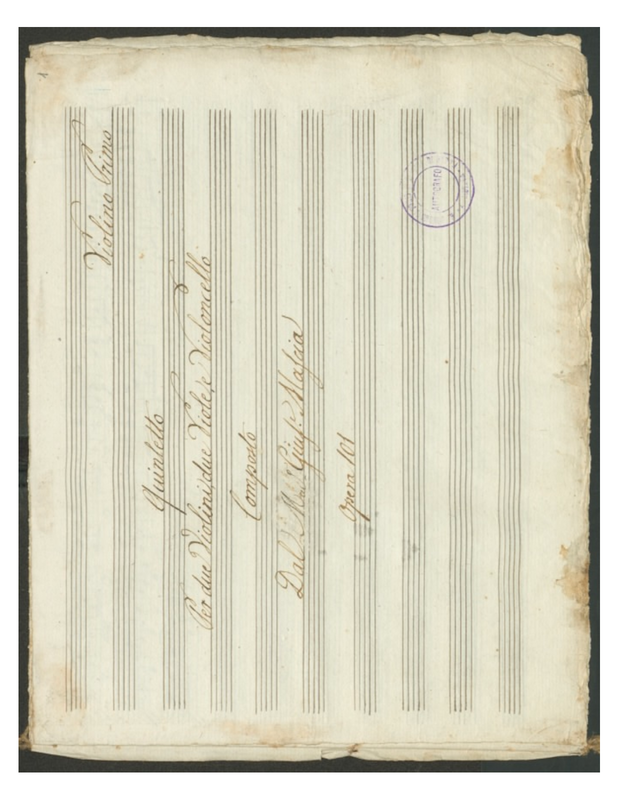 1
Violino Primo
Quintetto
Per due Violini, due Viole, e Violoncello
Composto
Dal M.ro Giuse. Mascia
Opera 101
AUTOGRAFO